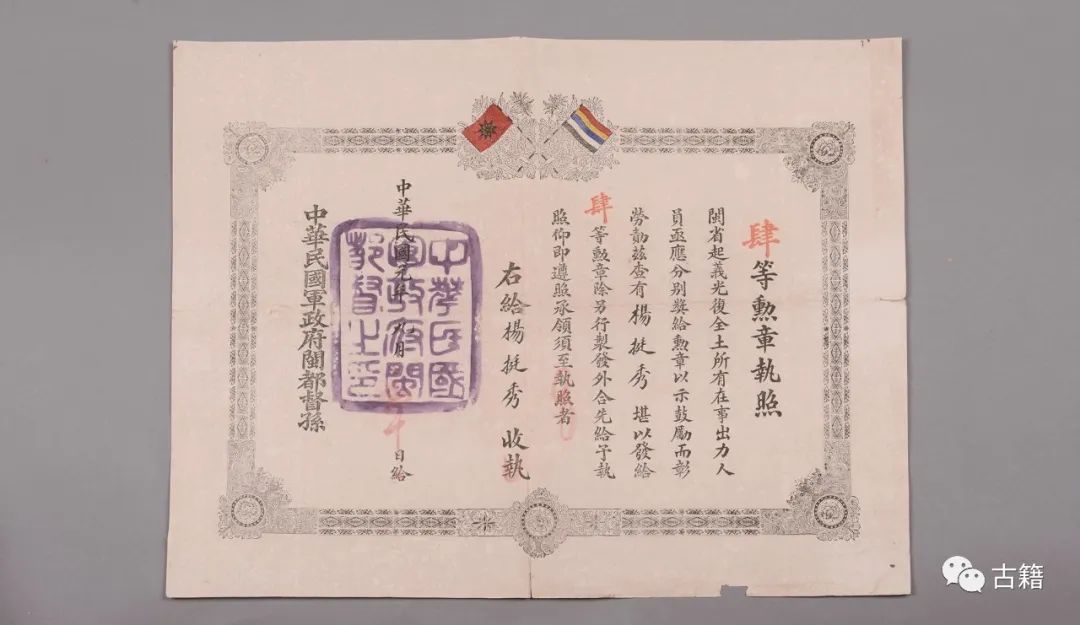 肆等勲章執照
閩省起義光復全土所有在事出力人
員亟應分別奬給勲章以示鼓勵而彰
勞勩兹查有楊挺秀堪以發給
肆等勲章除另行製發外合先給予執
照仰即遵照承領須至執照者
右給楊挺秀收執
中華民國元年九月 日給
中華民國軍政府閩都督孫
中華民國
軍政府閩
都督之印
古籍